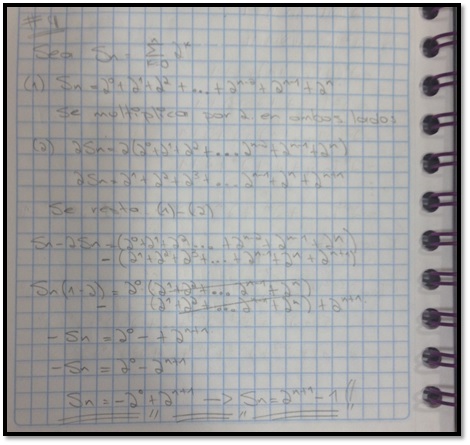 #4
Sea Sn = Σ 2ⁿ
(1) Sn = 2⁰ + 2¹ + 2² + ... + 2ⁿ⁻² + 2ⁿ⁻¹ + 2ⁿ
Se multiplica por 2 en ambos lados
(2) 2Sn = 2(2⁰ + 2¹ + 2² + ... 2ⁿ⁻² + 2ⁿ⁻¹ + 2ⁿ)
2Sn = 2¹ + 2² + 2³ + ... 2ⁿ⁻¹ + 2ⁿ + 2ⁿ⁺¹
Se resta (1)-(2)
Sn - 2Sn = (2⁰ + 2¹ + 2² ... + 2ⁿ⁻² + 2ⁿ⁻¹ + 2ⁿ)
- (2¹ + 2² + 2³ + ... + 2ⁿ⁻¹ + 2ⁿ + 2ⁿ⁺¹)
Sn(1-2) = 2⁰ (2¹ + 2² + ... 2ⁿ⁻¹ + 2ⁿ)
- (2¹ + 2² + ... 2ⁿ⁻¹ + 2ⁿ) + 2ⁿ⁺¹
- Sn = 2⁰ - + 2ⁿ⁺¹
- Sn = 2⁰ - 2ⁿ⁺¹
Sn = -2⁰ + 2ⁿ⁺¹ → Sn = 2ⁿ⁺¹ - 1